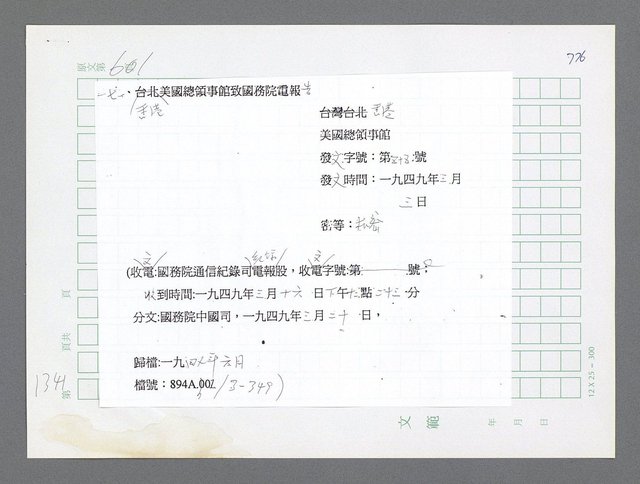 原文第 601
776
台北美國總領事館致國務院電報告
香港
台灣台北 香港
美國總領事館
發文字號：第 號
發文時間：一九四九年三月
三日
密等：
(收電:國務院通信紀錄司電報股，收電字號:第 號；
收到時間:一九四九年三月十六日下午 點二十三分
分文:國務院中國司，一九四九年三月二十日，
歸檔:一九四九年六月
檔號：894A.00/3-349)
1341
第 頁共 頁
12 X 25 = 300
文範
年 月 日